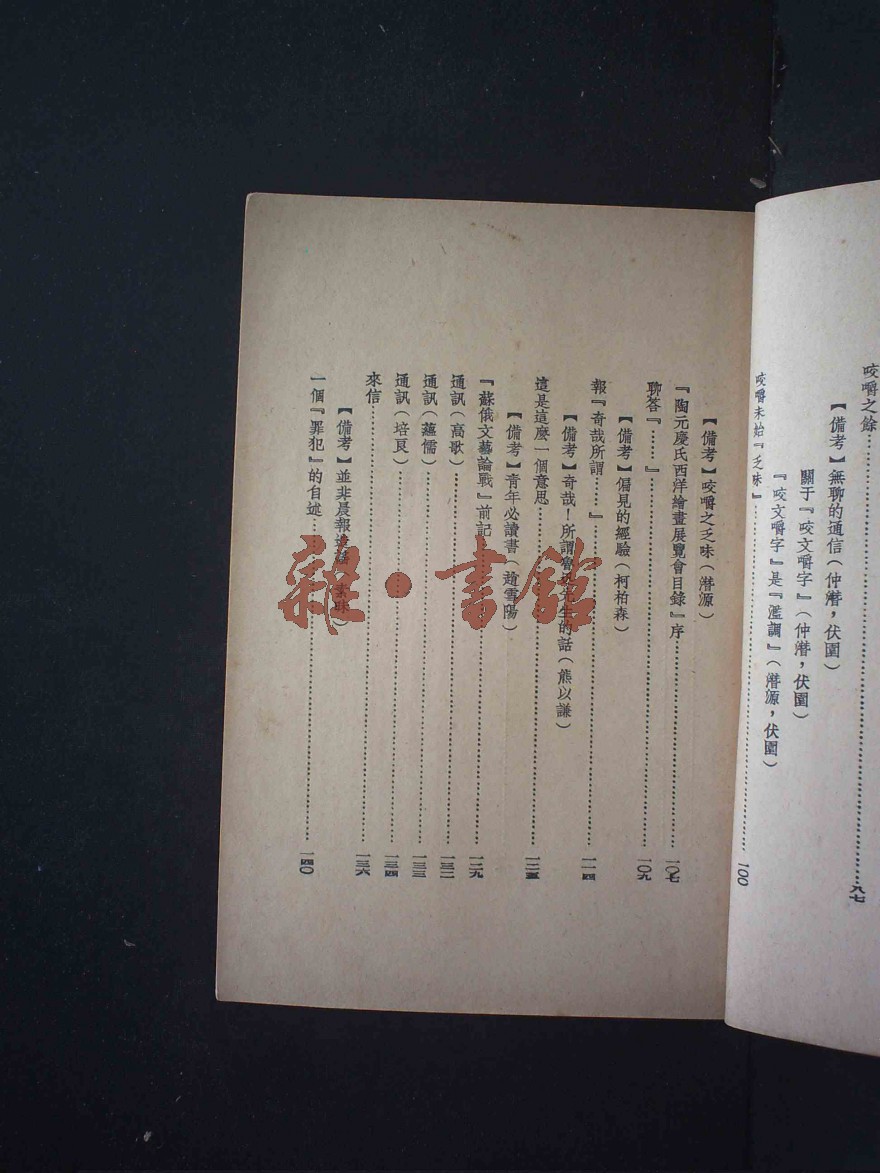 咬嚼之餘……八七
【備考】無聊的通信(仲潛,伏園)
關于『咬文嚼字』(仲潛,伏園)
『咬文嚼字』是『濫調』(潛源,伏園)
咬嚼未始『乏味』……一〇〇
【備考】咬嚼之乏味(潛源)
『陶元慶氏西洋繪畫展覽會目錄』序……一〇七
聊答『……』……一〇九
【備考】偏見的經驗(柯柏森)
報『奇哉所謂……』……一一四
【備考】奇哉!所謂魯迅先生的話(熊以謙)
這是這麼一個意思……一二五
【備考】青年必讀書(趙雪陽)
『蘇俄文藝論戰』前記……一二九
通訊(高歌)……一三二
通訊(蘊儒)……一三三
通訊(培良)……一三四
來信……一三六
【備考】並非晨報
一個『罪犯』的自述……一四〇
雜·書館